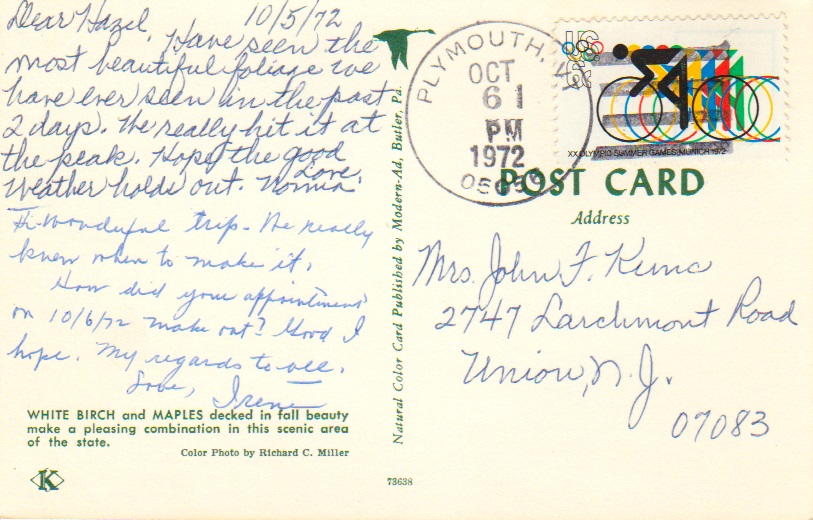 Dear Hazel, 10/5/72
Have seen the
most beautiful foliage we
have ever seen in the past
2 days. We really hit it at
the peak. Hope the good
weather holds out. Love,
Norma
Hi-Wonderful trip. We really
knew when to make it.
How did your appointment
on 10/6/72 make out? Good I
hope. My regards to all.
Love, Irene
WHITE BIRCH and MAPLES decked in fall beauty
make a pleasing combination in this scenic area
of the state.
Color Photo by Richard C. Miller
K
Natural Color Card Published by Modern-Ad, Butler, Pa.
73638
PLYMOUTH, VT
OCT
6 1
PM
1972
US
8c
XX OLYMPIC SUMMER GAMES MUNICH 1972
POST CARD
Address
Mrs. John F. Kunc
2747 Larchmont Road
Union, N.J.
07083